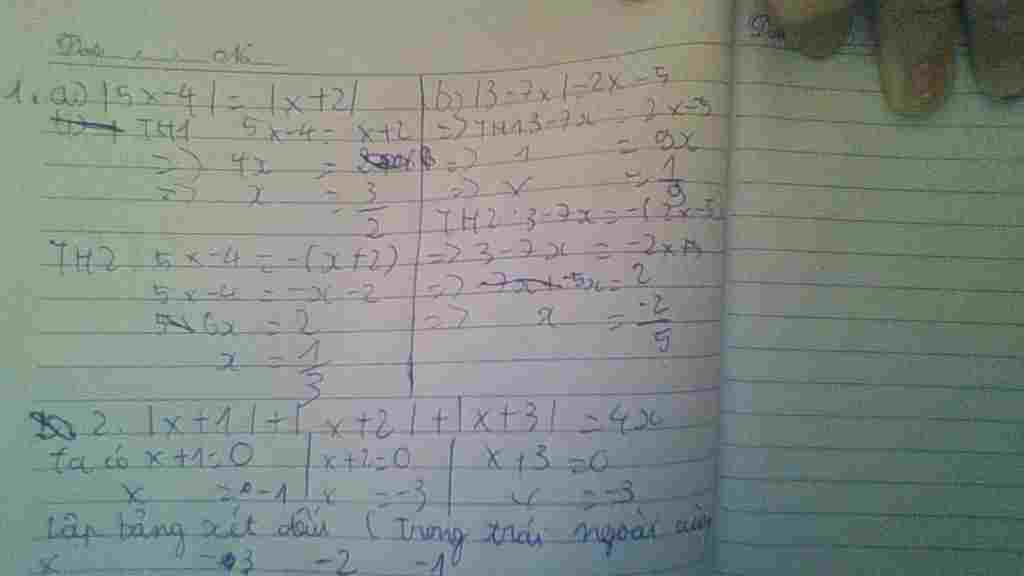 1. a) |5x-4| = |x+2|
TH1 5x-4 = x+2
=> 4x =
=> x = 3/2
TH2 5x-4 = -(x+2)
5x-4 = -x-2
6x = 2
x = 1/3
b) |3-7x| = 2x-5
=> TH1 3-7x = 2x-5
=> 1 = 9x
=> x = 1/9
TH2: 3-7x = -(2x-5)
=> 3-7x = -2x+5
=> -5x = 2
=> x = -2/5
2. |x+1| + |x+2| + |x+3| = 4x
ta có x+1=0 | x+2=0 | x+3=0
x = -1 | x = -3 | x = -3
Lập bảng xét dấu (Trong trái ngoài cùng
x -3 -2 -1